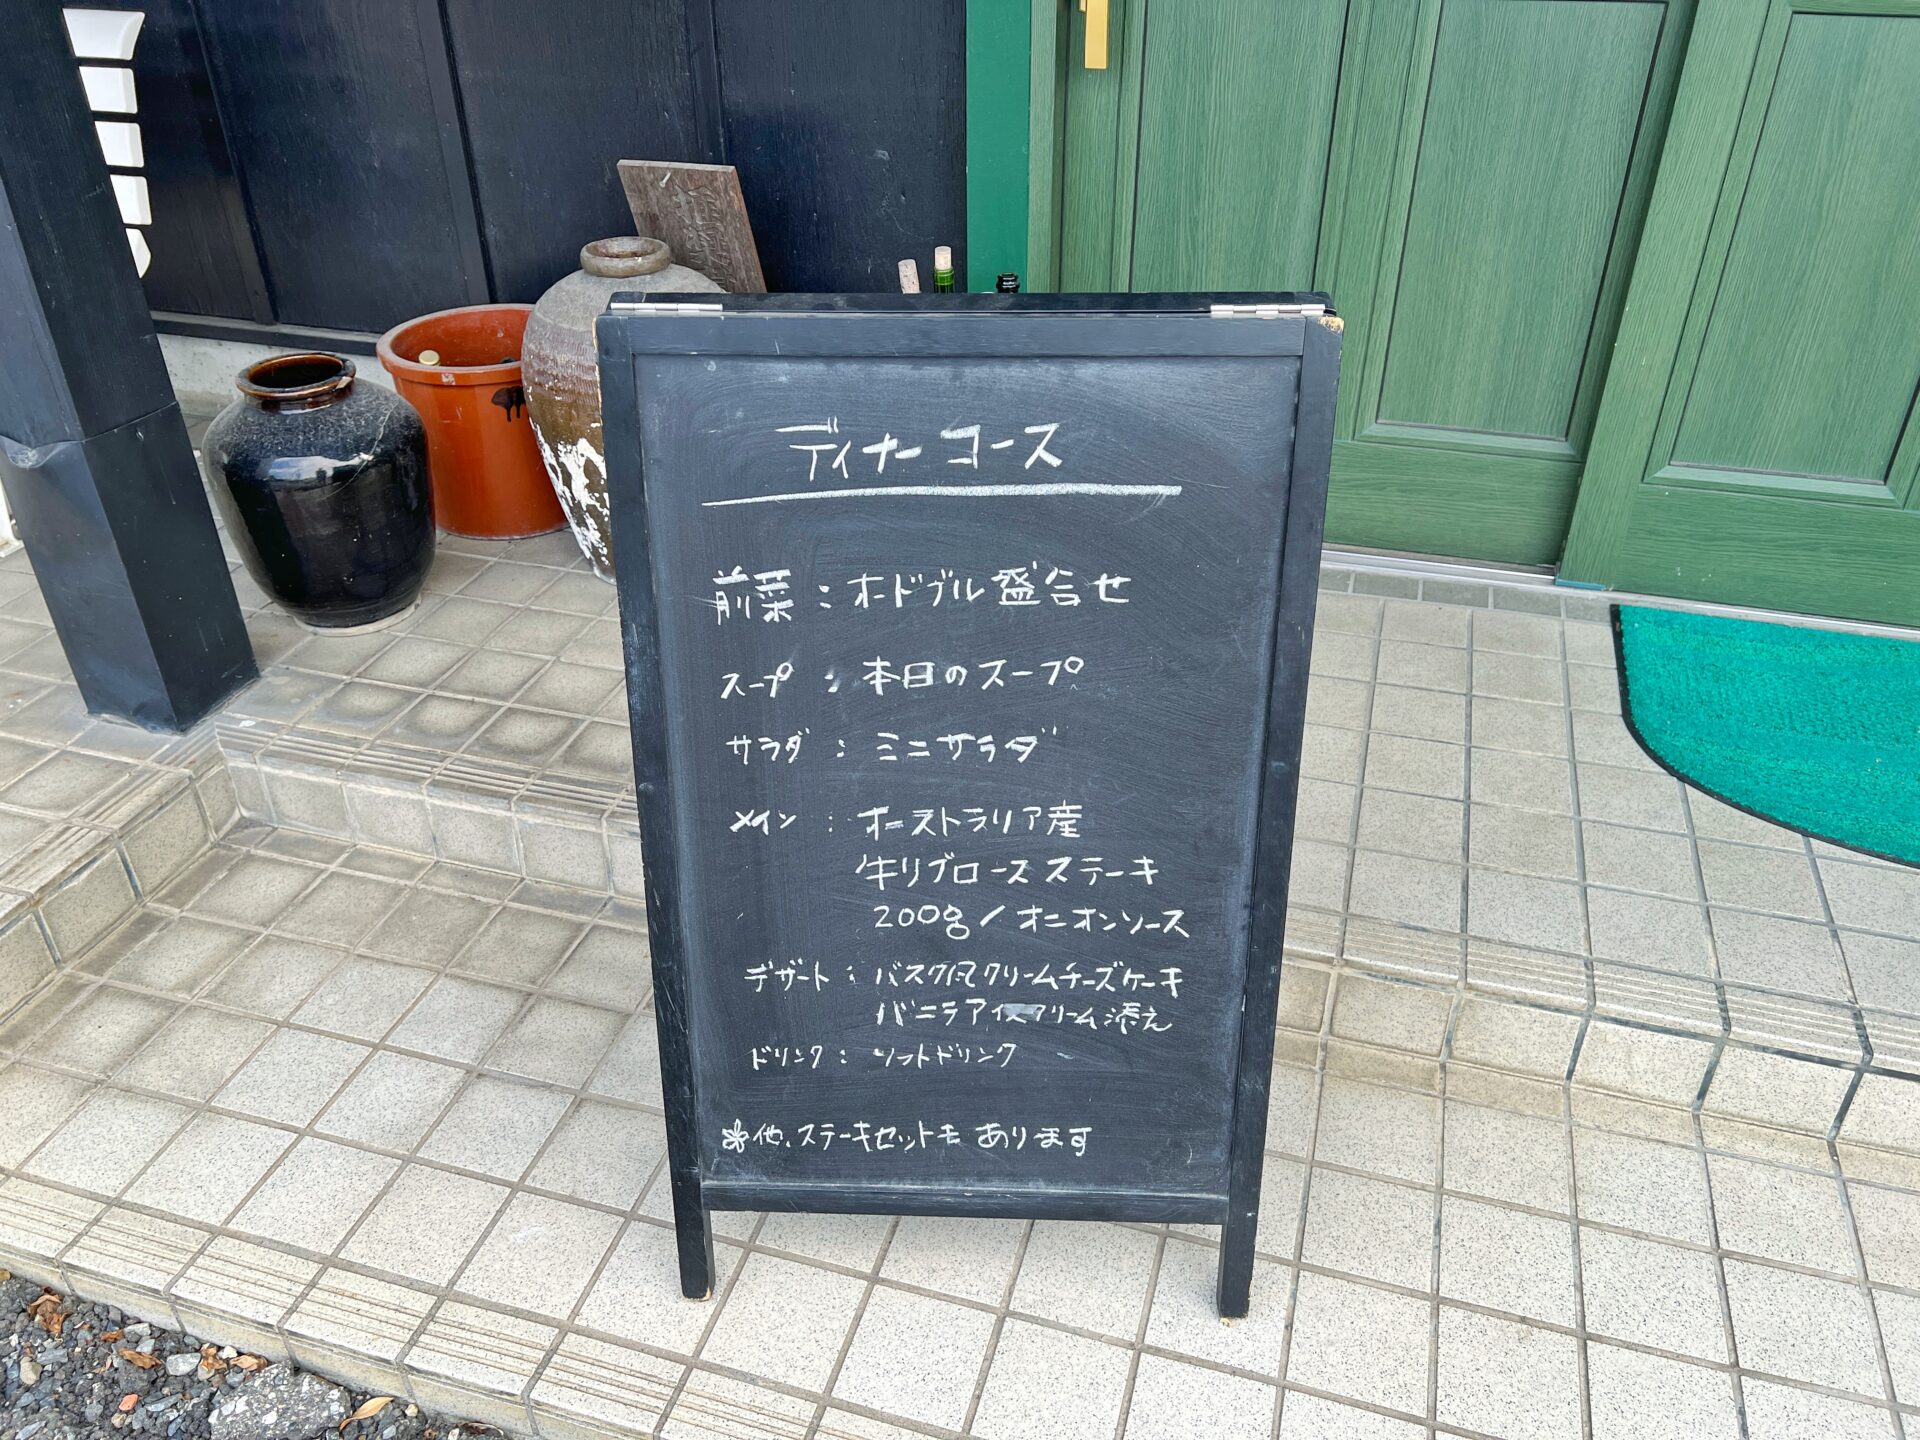 ディナーコース
前菜:オードブル盛合せ
スープ:本日のスープ
サラダ:ミニサラダ
メイン:オーストラリア産
牛リブロースステーキ
200g/オニオンソース
デザート:バスク風クリームチーズケーキ
バニラアイスクリーム添え
ドリンク:ソフトドリンク
※他、ステーキセットも あります